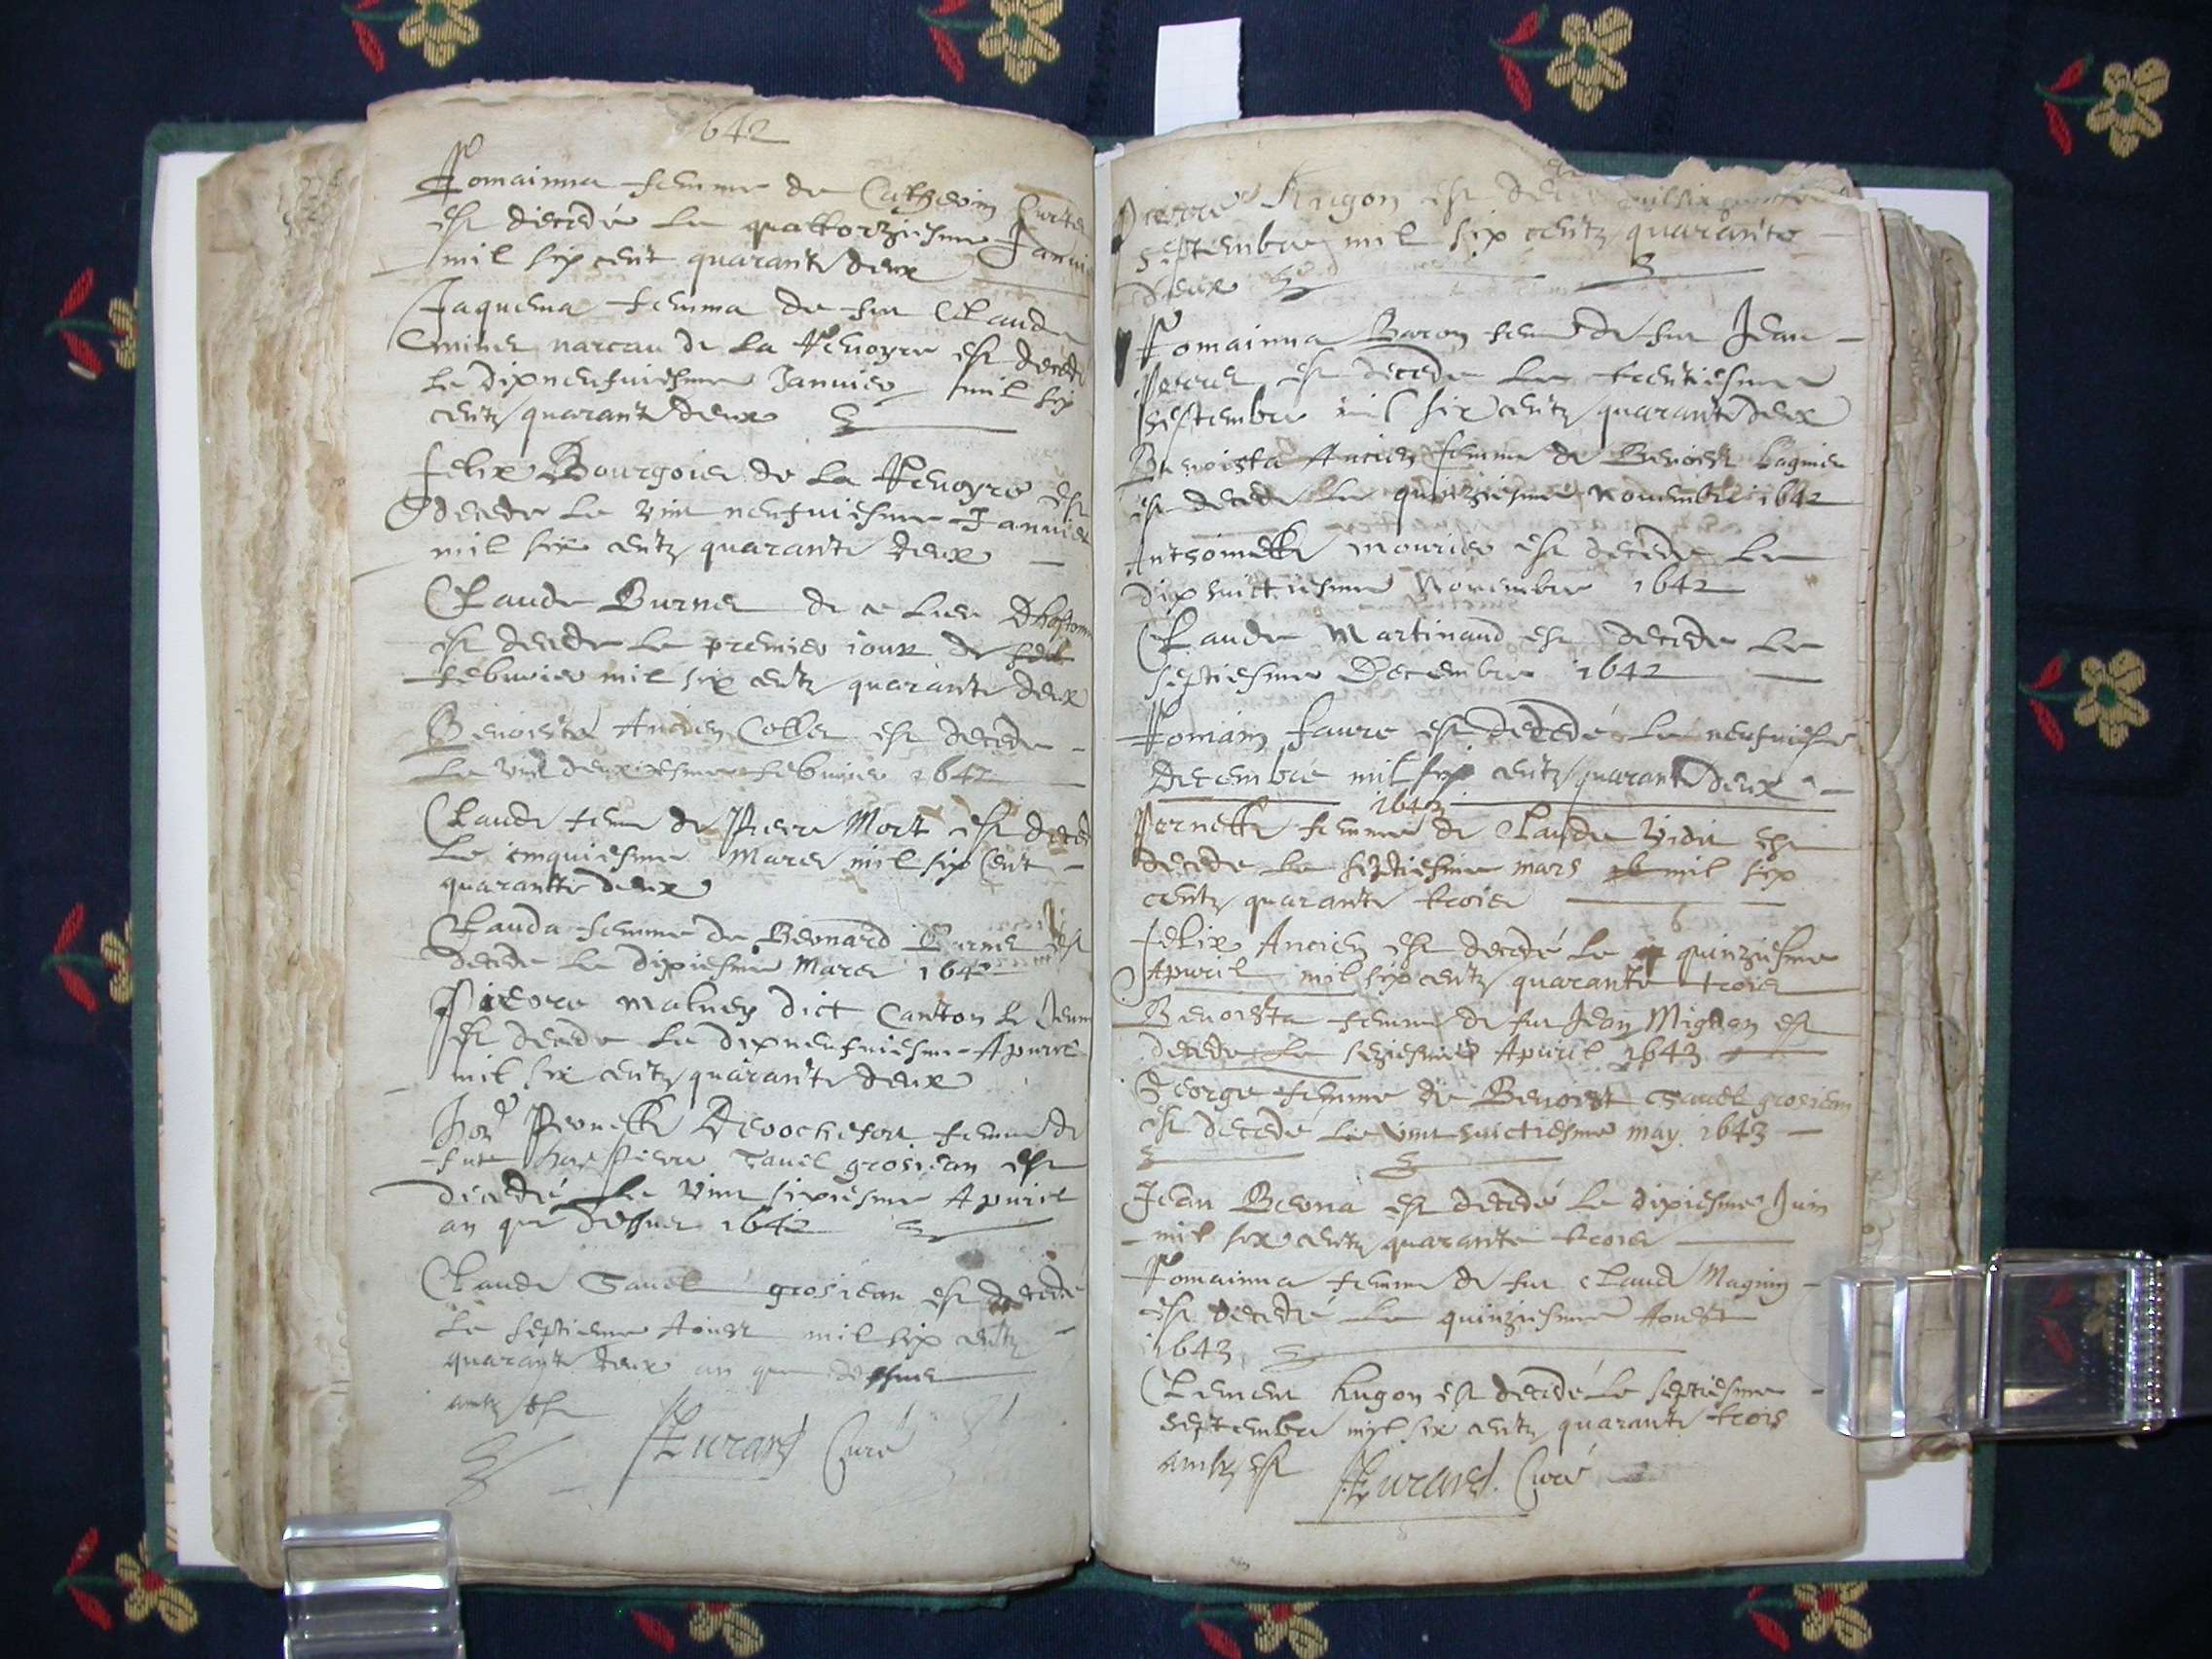 642
Romainna femme de Catherin Curtet
est decedé le quattorziesme Januier
mil six cent quarante deux
Jaquema femma de fur Claude
narcau de la Reuoyre est decede
le dixneufuiesme Januier mil six
centz quarante deux
Felix Bourgois de la Reuoyre est
decede le vint neufuiesme Januier
mil six centz quarante deux
Claude Burnet de ce lieu
est decede le premier iour de
feburier mil six centz quarante deux
Benoiste Ancien Collet est decede
le vint deuxiesme feburier 1642
Claude feme de Pierre Mort est decede
le cinquiesme Mars mil six Cent
quarante deux
Clauda femme de Bernard Burnet est
decede le dixiesme Mars 1642
Pierre matney dict Canton le Jeune
est decede le dixneufuiesme Apuril
mil six centz quarante deux
Pernette Derochefort femme de
fut Pierre Tauel grosjean est
decedé le vint sixiesme Apuril
an que dessus 1642
Claude Tauel grosjean est decede
le septieme Aoust mil six centz
quarante deux an que dessus
Curé
Pierre Hugon est
septembre mil six centz quarante
deux
Romainna Baron feme de fur Jean
est decede le trentiesme
septembre mil six centz quarante deux
Benoista Ancien femme de Benoist
est decede le quinziesme Nouembre 1642
Anthoinette mourier est decede le
dix huictiesme Nouembre 1642
Claude Martinaud est decede le
septiesme Decembre 1642
Romain Faure est decedé le neufuiesme
Decembre mil six centz quarante deux
1643
Pernette femme de Claude Vidit est
decede le septiesme mars mil six
centz quarante trois
Felix Ancien est decedé le quinziesme
Apuril mil six centz quarante trois
Benoista femme de fur Jean Mignon est
decede le seziesme Apuril 1643
George femme de Benoist Tauel grosjean
est decede le vint huictiesme may 1643
Jean Berna est decedé le dixiesme Juin
mil six centz quarante trois
Romainna femme de fur Claude Magnin
est decedé le quinziesme Aoust
1643
Clement hugon est decedé le septiesme
septembre mil six centz quarante trois
Curé